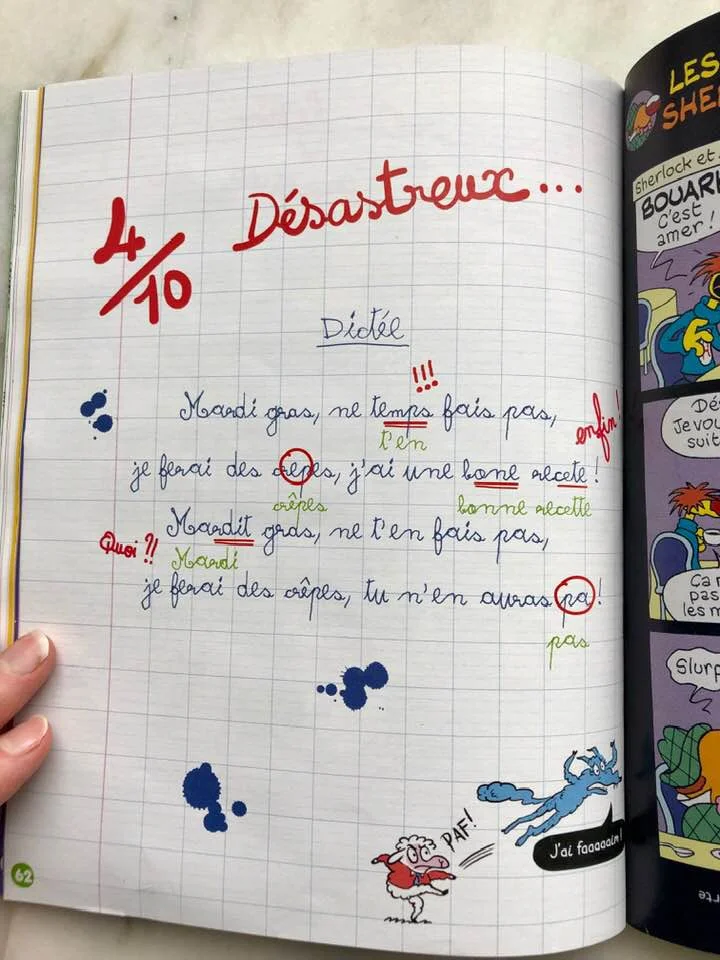 4/10 Désastreux...
Dictée
!!!
Mardi gras, ne temps fais pas,
enfin!
t'en
je ferai des crêpes, j'ai une bone recete !
crêpes bonne recette
Mardit gras, ne t'en fais pas,
Quoi ?!
Mardi
je ferai des crêpes, tu n'en auras pa !
pas
PAF!
J'ai faaaaaim !
62
LES
SHE
Sherlock et
BOUAR
C'EST
AMER !
Dés
Je vou
suit
Ça
pas
les m
Slurp